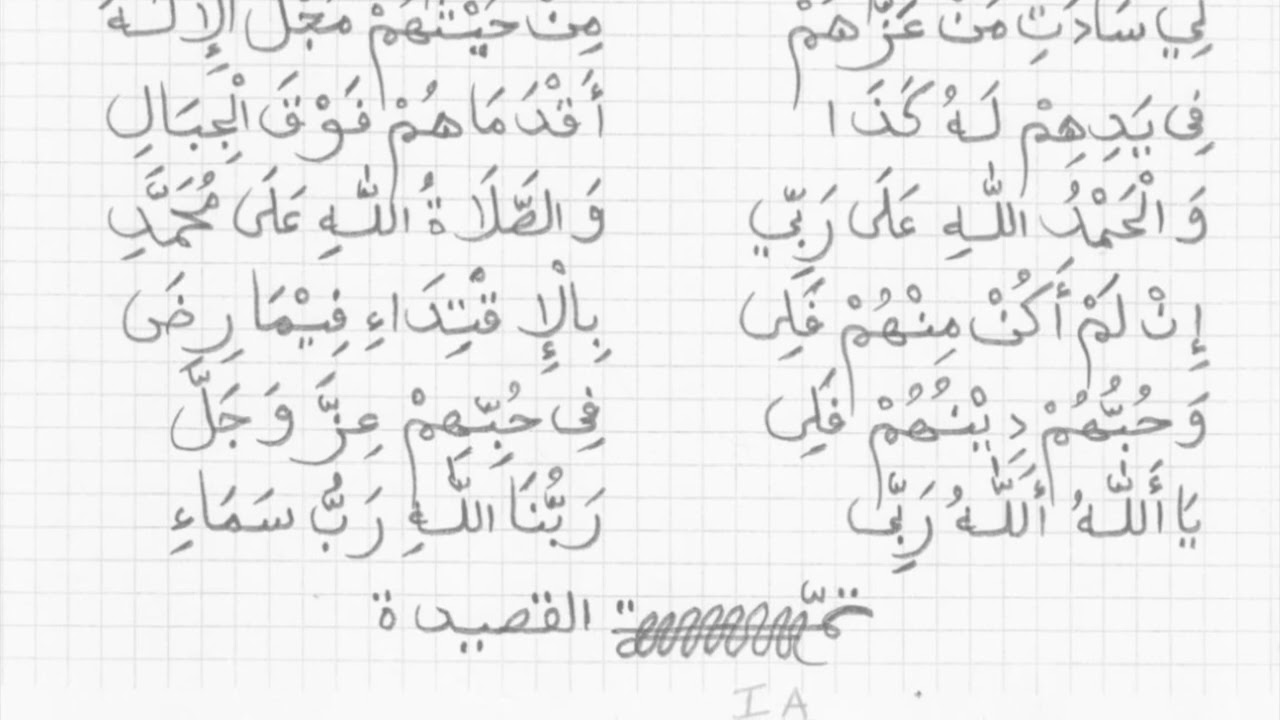 لِي سَادَتِ مَنْ عَزَّهُمْ مِنْ حَيْثُهُمْ مَجْلَ الْإِلَـٰهَ
فِى يَدِهِمْ لَهُ كَذَا أَقْدَمَاهُمْ فَوْقَ الْجِبَالِ
وَالْحَمْدُ اللّٰهِ عَلَى رَبِّي وَالصَّلَاةُ اللّٰهِ عَلَى مُحَمَّدِ
إِنْ لَمْ أَكُنْ مِنْهُمْ فَلِى بِالْإِقْتِدَاءِ فِيْمَا رِضَى
وَحُبُّهُمْ دِيْنُهُمْ فَلِى فِى حُبِّهِمْ عِزَّ وَجَلَّ
يَا أَللّٰهُ أَللّٰهُ رَبِّى رَبُّنَا اللّٰهِ رَبُّ سَمَاءِ
تمّت القصيدة
IA